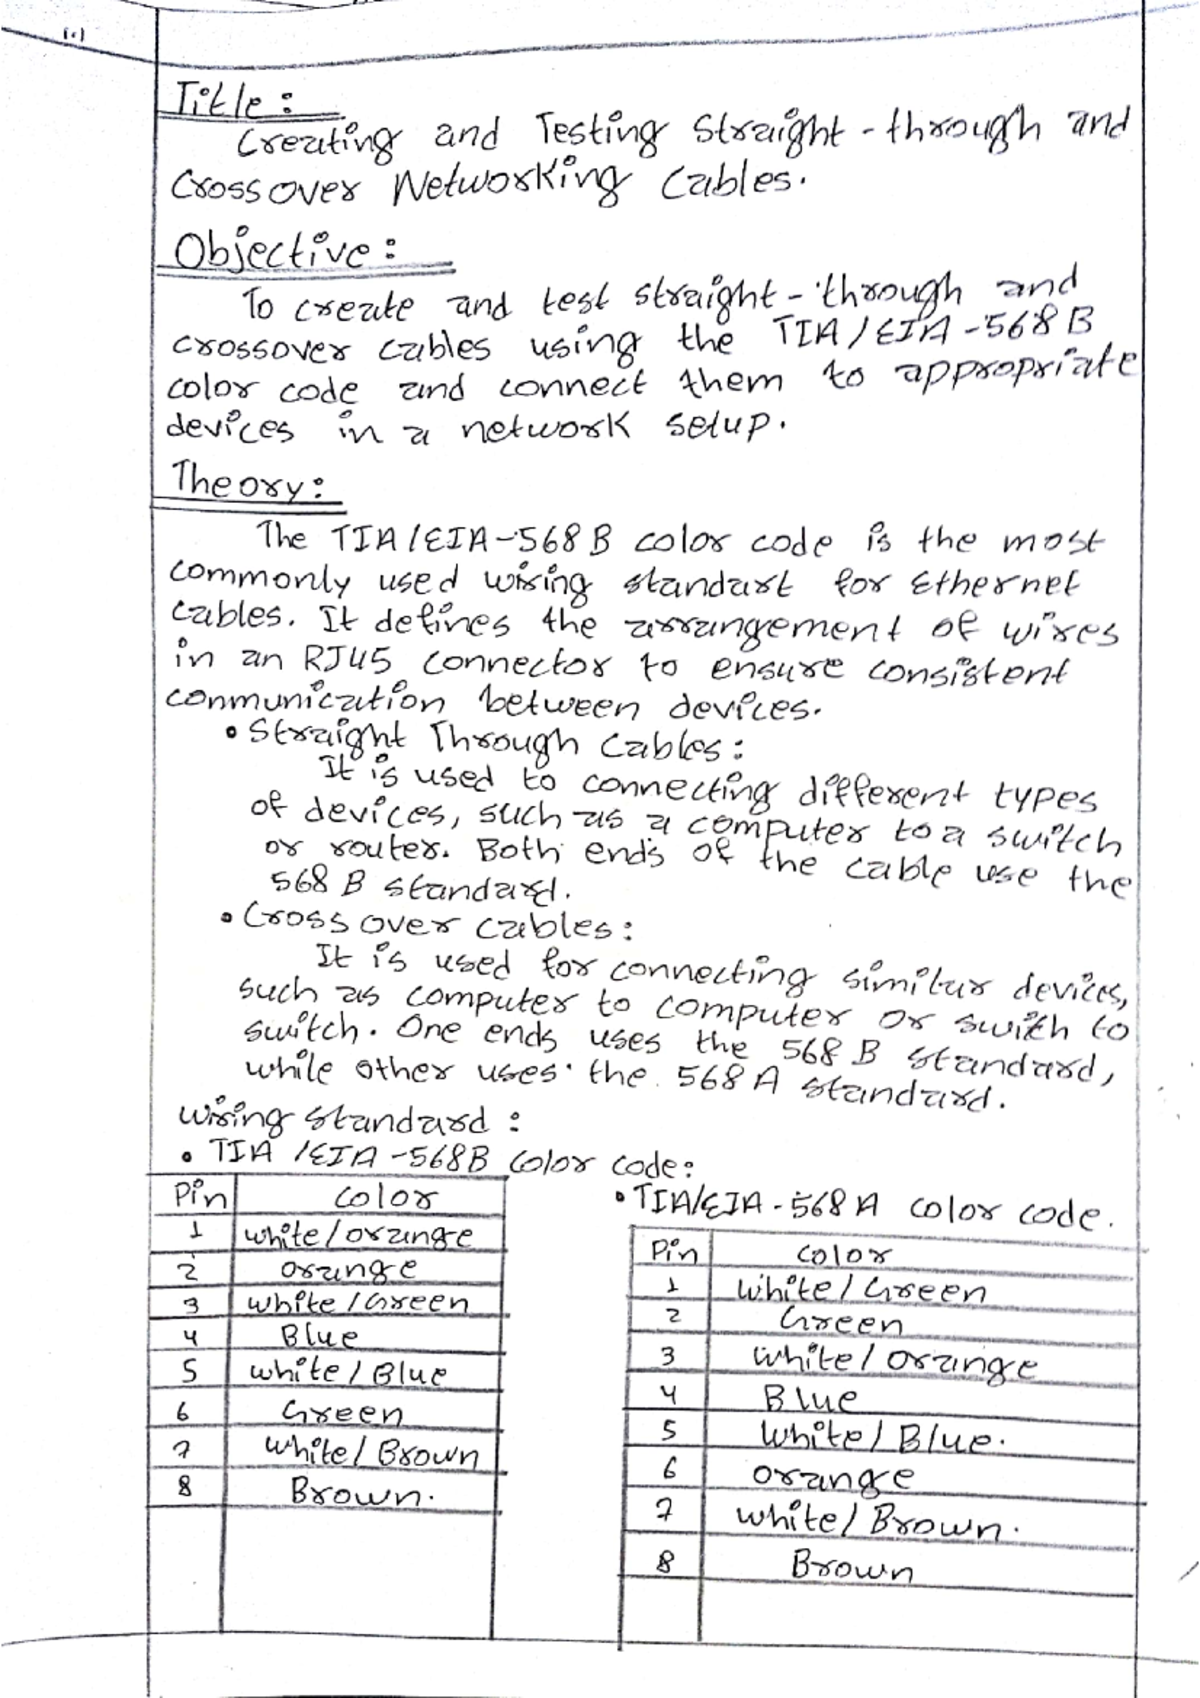 Title:
Creating and Testing Straight-through and
Crossover Networking Cables.
Objective:
To create and test straight-through and
crossover cables using the TIA/EIA-568B
color code and connect them to appropriate
devices in a network setup.
Theory:
The TIA/EIA-568B color code is the most
commonly used wiring standart for Ethernet
cables. It defines the arrangement of wires
in an RJ45 connector to ensure consistent
conmunication between devices.
• Straight Through Cables:
It is used to connecting different types
of devices, such as a computer to a switch
or router. Both ends of the cable use the
568 B standard.
• Cross over cables:
It is used for connecting similar devices,
such as computer to computer or swith to
switch. One ends uses the 568 B standard,
while other uses the 568 A standard.
wiring standard:
• TIA/EIA-568B color code:
Pin color
1 white/orange
2 orange
3 white/Green
4 Blue
5 white/Blue
6 Green
7 white/Brown
8 Brown.
• TIA/EIA-568A color code.
Pin color
1 White/Green
2 Green
3 White/orange
4 Blue
5 White/Blue.
6 orange
7 white/Brown.
8 Brown